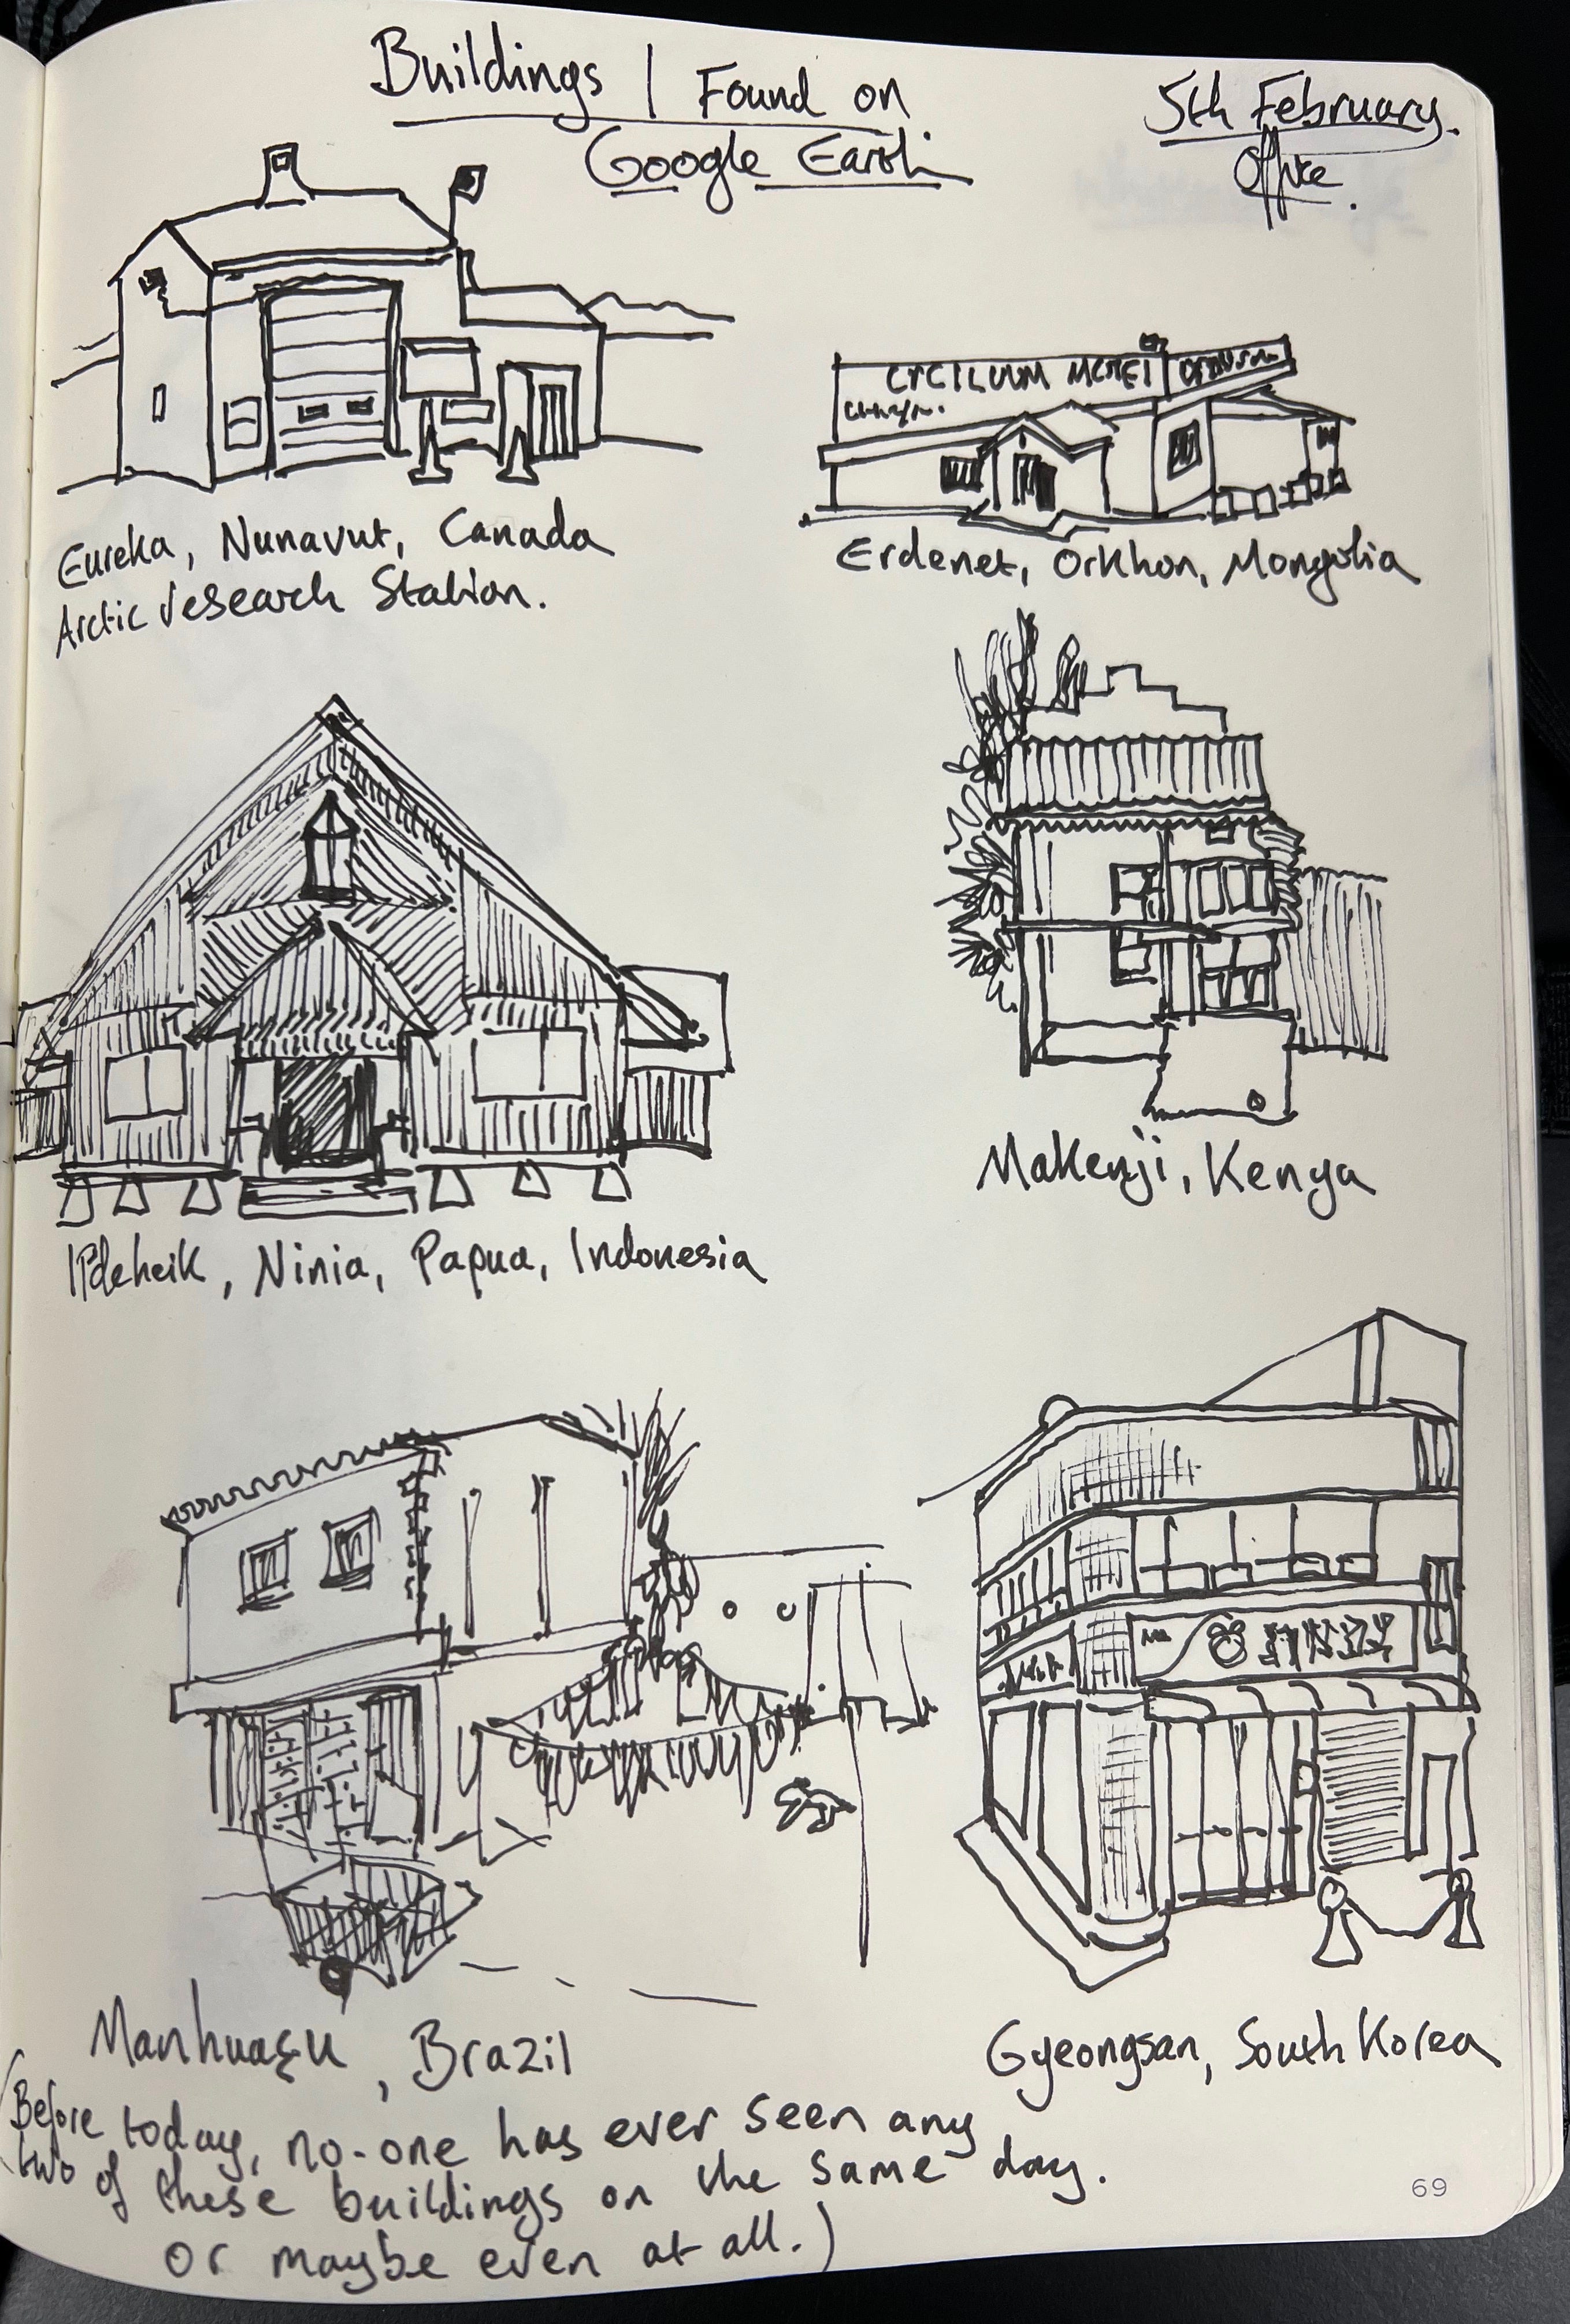 Buildings | Found on
Google Earth
5th February.
Office.
Eureka, Nunavut, Canada
Arctic research Station.
Erdenet, Orkhon, Mongolia
Makenji, Kenya
Ninia, Papua, Indonesia
Manhuaçu, Brazil
Gyeongsan, South Korea
(Before today, no-one has ever seen any
two of these buildings on the same day.
or maybe even at all.)
69